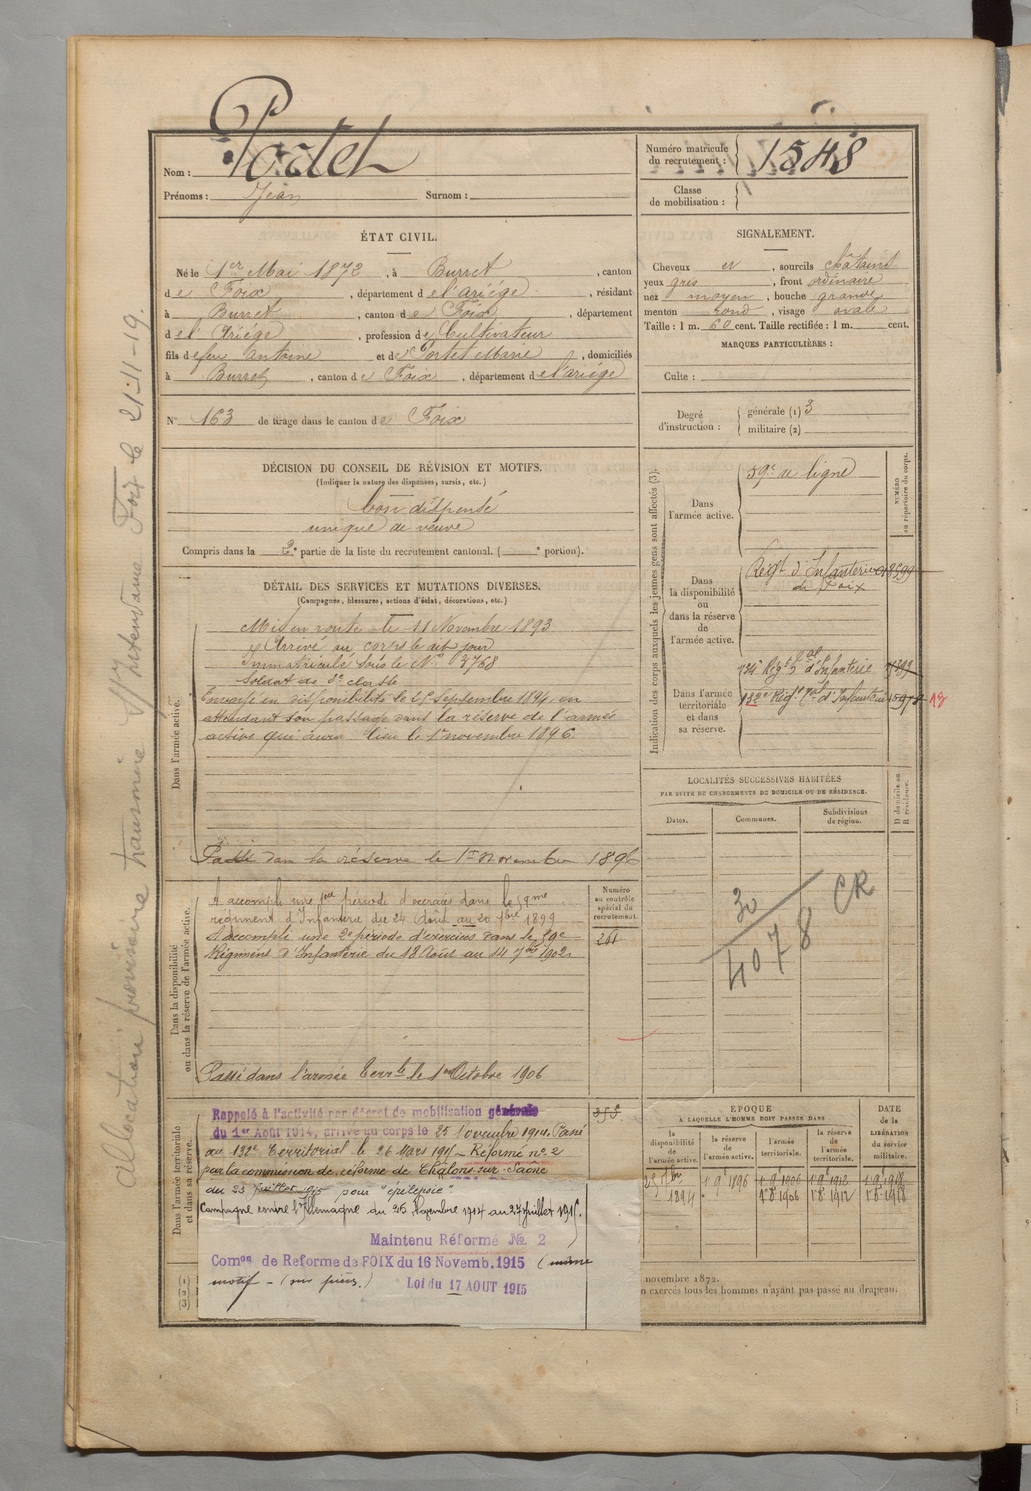 Nom : Portet
Prénoms : Jean Surnom :
ÉTAT CIVIL.
Né le 1er Mai 1872, à Burret, canton
de Foix, département de l'ariège, résidant
à Burret, canton de Foix, département
de l'Ariège, profession de Cultivateur
fils de feu antoine et de Portet Marie, domiciliés
à Burret, canton de Foix, département de l'ariège
N° 163 de tirage dans le canton de Foix
DÉCISION DU CONSEIL DE RÉVISION ET MOTIFS.
(Indiquer la nature des dispenses, sursis, etc.)
bon dispensé
unique de veuve
Compris dans la 2e partie de la liste du recrutement cantonal. ( e portion).
DÉTAIL DES SERVICES ET MUTATIONS DIVERSES.
(Campagnes, blessures, actions d'éclat, décorations, etc.)
Dans l'armée active.
Mis en route le 11 Novembre 1893
Arrivé au corps le dit jour
Immatriculé sous le N° 3768
Soldat de 2e classe
Envoyé en disponibilité le 25 Septembre 1894, en
attendant son passage dans la réserve de l'armée
active qui aura lieu le 1er novembre 1896
Passé dans la réserve le 1er novembre 1896
Dans la disponibilité
ou dans la réserve de l'armée active.
A accompli une 1ère période d'exercices dans le 59me
régiment d'Infanterie du 24 Août au 20 7bre 1899
A accompli une 2e période d'exercices dans le 59e
Régiment d'Infanterie du 18 Août au 14 7bre 1902
Passé dans l'armée Terrle le 1er Octobre 1906
Numéro
au contrôle
spécial du
recrutement.
261
Dans l'armée territoriale
et dans sa réserve.
Rappelé à l'activité par décret de mobilisation générale
du 1er Août 1914, arrivé au corps le 25 Novembre 1914. Passé
au 132e Territorial le 26 Mars 1915 – Réformé n° 2
par la commission de réforme de Châlons sur Saône
du 23 juillet 1915 pour "épilepsie".
Campagne contre l'Allemagne du 25 Novembre 1914 au 27 Juillet 1915.
Maintenu Réformé No. 2
Comon de Reforme de FOIX du 16 Novemb. 1915 (même
motif – (sur pièces.) Loi du 17 AOUT 1915
(1)
(2)
(3)
Numéro matricule
du recrutement : 1548
Classe
de mobilisation :
SIGNALEMENT.
Cheveux et, sourcils châtains
yeux gris, front ordinaire
nez moyen, bouche grande
menton rond, visage ovale
Taille : 1 m. 60 cent. Taille rectifiée : 1 m. cent.
MARQUES PARTICULIÈRES :
Culte :
Degré
d'instruction :
générale (1) 3
militaire (2)
Indication des corps auxquels les jeunes gens sont affectés (3).
NUMÉRO
au répertoire du corps.
Dans
l'armée active.
59e de ligne
Dans
la disponibilité
ou
dans la réserve
de
l'armée active.
Régt d'Infanterie
de Foix
Dans l'armée
territoriale
et dans
sa réserve.
134e Régt Tal d'Infanterie
132e Régt Tal d'Infanterie
LOCALITÉS SUCCESSIVES HABITÉES
PAR SUITE DE CHANGEMENTS DE DOMICILE OU DE RÉSIDENCE.
Dates.
Communes.
Subdivisions
de région.
D domicile ou
R résidence.
30
4078 CR
EPOQUE
A LAQUELLE L'HOMME DOIT PASSER DANS
la
disponibilité
de
l'armée active.
la réserve
de
l'armée active.
l'armée
territoriale.
la réserve
de
l'armée
territoriale.
DATE
de la
LIBÉRATION
du service
militaire.
1894
1 9 1896
1 9 1906
1 9 1912
1 9 1918
1r 8 1906
1r 8 1912
1r 8 1918
novembre 1872.
n exercés tous les hommes n'ayant pas passé au drapeau.
Allocation provisoire transmise Intendance Foix le 21-11-19.